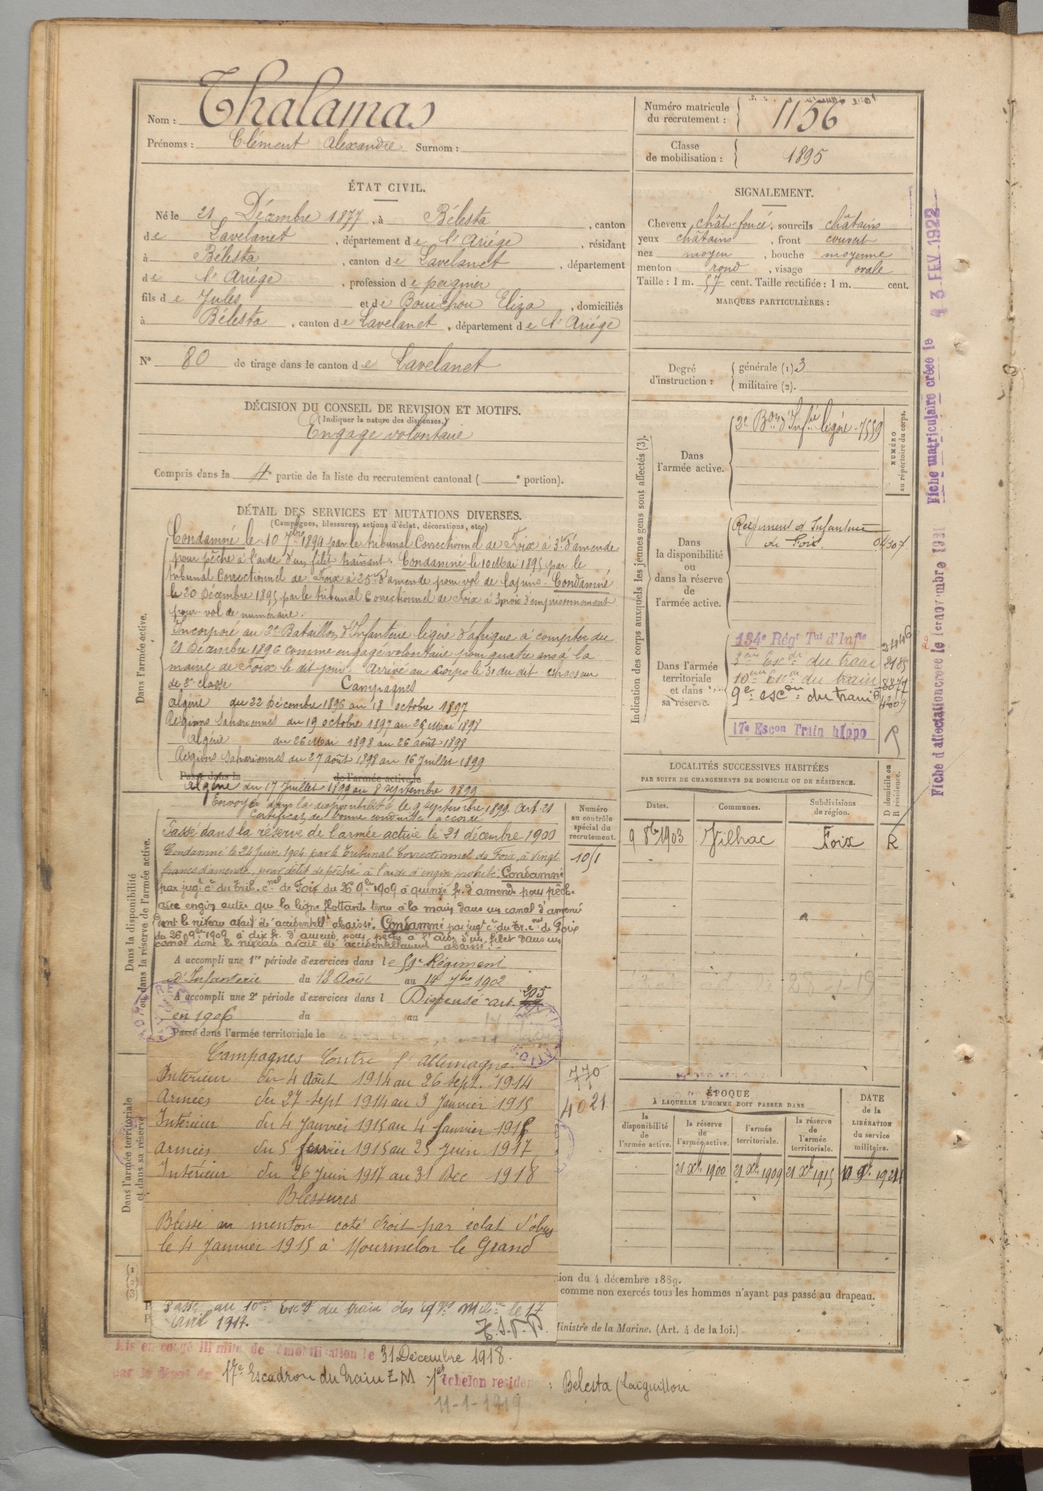 Nom : Thalamas
Prénoms : Clément Alexandre Surnom :
Numéro matricule du recrutement : 1156
Classe de mobilisation : 1895
ÉTAT CIVIL.
Né le 21 Décembre 1877, à Bélesta, canton
de Lavelanet, département de l'Ariége, résidant
à Bélesta, canton de Lavelanet, département
de l'Ariége, profession de peigneur
fils de Jules et de Bouichou Eliza, domiciliés
à Bélesta, canton de Lavelanet, département de l'Ariége
N° 80 de tirage dans le canton de Lavelanet
SIGNALEMENT.
Cheveux chât-foncé, sourcils châtains
yeux châtains, front couvert
nez moyen, bouche moyenne
menton rond, visage ovale
Taille : 1 m. 57 cent. Taille rectifiée : 1 m. cent.
MARQUES PARTICULIÈRES :
Degré d'instruction : générale (1) 3
militaire (2).
DÉCISION DU CONSEIL DE REVISION ET MOTIFS.
(Indiquer la nature des dispenses.)
Engagé volontaire
Compris dans la 4e partie de la liste du recrutement cantonal ( e portion).
DÉTAIL DES SERVICES ET MUTATIONS DIVERSES.
(Campagnes, blessures, actions d'éclat, décorations, etc.)
Dans l'armée active.
Condamné le 10 7bre 1894 par le tribunal Correctionnel de Foix à 3f d'amende
pour pêche à l'aide d'un filet traînant. Condamné le 10 Mai 1895 par le
tribunal Correctionnel de Foix à 25f d'amende pour vol de lapins. Condamné
le 20 Décembre 1895 par le tribunal Correctionnel de Foix à 3 mois d'emprisonnement
pour vol de numéraire.
Incorporé au 3e Bataillon d'Infanterie légère d'afrique à compter du
21 Décembre 1896 comme engagé volontaire pour quatre ans à la
mairie de Foix le dit jour. Arrivé au Corps le 31 du dit chasseur
de 2e classe
Campagnes
Algérie du 22 Décembre 1896 au 18 octobre 1897
Régions Sahariennes du 19 octobre 1897 au 25 Mai 1898
Algérie du 26 Mai 1898 au 26 août 1898
Régions Sahariennes du 27 août 1898 au 16 Juillet 1899
Algérie du 17 Juillet 1899 au 8 septembre 1899
Envoyé dans la disponibilité le 9 Septembre 1899 Art. 21
Certificat de bonne conduite accordé
Dans la disponibilité ou dans la réserve de l'armée active.
Passé dans la réserve de l'armée active le 21 décembre 1900
Condamné le 24 Juin 1904 par le Tribunal Correctionnel de Foix, à vingt
francs d'amende, pour délit de pêche à l'aide d'engin prohibé. Condamné
par jugt ct du trib. cnel de Foix du 26 9bre 1909 à quinze fr. d'amende pour pêche
avec engin autre que la ligne flottante tenue à la main dans un canal d'amené
dont le niveau avait été accidentellt abaissé. Condamné par jugt ct du tr. cnel de Foix
du 26 9bre 1909 à dix fr. d'amende pour pêche à l'aide d'un filet dans un
canal dont le niveau avait été accidentellement abaissé.
A accompli une 1re période d'exercices dans le 59e Régiment
d'Infanterie du 18 Août au 14 7bre 1902
A accompli une 2e période d'exercices dans l Dispensé art. 205
en 1906 du au
Passé dans l'armée territoriale le
Numéro au contrôle spécial du recrutement.
10/1
770
4021
Dans l'armée territoriale et dans sa réserve
Campagnes Contre l'Allemagne
Intérieur du 4 Août 1914 au 26 Sept. 1914
Armées du 27 Sept 1914 au 3 Janvier 1915
Intérieur du 4 Janvier 1915 au 4 Janvier 1915
Armées du 5 1915 au 25 Juin 1917
Intérieur du 26 Juin 1917 au 31 Dec 1918
Blessures
Blessé au menton coté droit par éclat d'obus
le 4 Janvier 1915 à Mourmelon le Grand
Passé au 10me Escon du train des Eqges Milres le 17
Avril 1917.
Indication des corps auxquels les jeunes gens sont affectés (3).
NUMÉRO au répertoire du corps.
Dans l'armée active.
3e Bon d'Infie légère 7559
Dans la disponibilité ou dans la réserve de l'armée active.
Régiment d'Infanterie de Foix
Dans l'armée territoriale et dans sa réserve.
134e Régt Tal d'Infie
Escon du train
10eme Escon du train
9e escon du train
17e Escon Train hippo
LOCALITÉS SUCCESSIVES HABITÉES
PAR SUITE DE CHANGEMENTS DE DOMICILE OU DE RÉSIDENCE.
Dates. Communes. Subdivisions de région. D domicile ou R résidence.
1903 Vilhac Foix R
ÉPOQUE
À LAQUELLE L'HOMME DOIT PASSER DANS
la disponibilité de l'armée active. la réserve de l'armée active. l'armée territoriale. la réserve de l'armée territoriale. DATE de la LIBÉRATION du service militaire.
21 Xbre 1900 21 Xbre 1909 21 Xbre 1915
ion du 4 décembre 1889.
comme non exercés tous les hommes n'ayant pas passé au drapeau.
Ministre de la Marine. (Art. 4 de la loi.)
Mis en congé illimité de démobilisation le 31 Décembre 1918.
par le dépôt du 17e Escadron du train E M 1er échelon résidence : Bélesta (Laiguillon
11-1-1919
Fiche matriculaire créée le 3 FEV. 1922